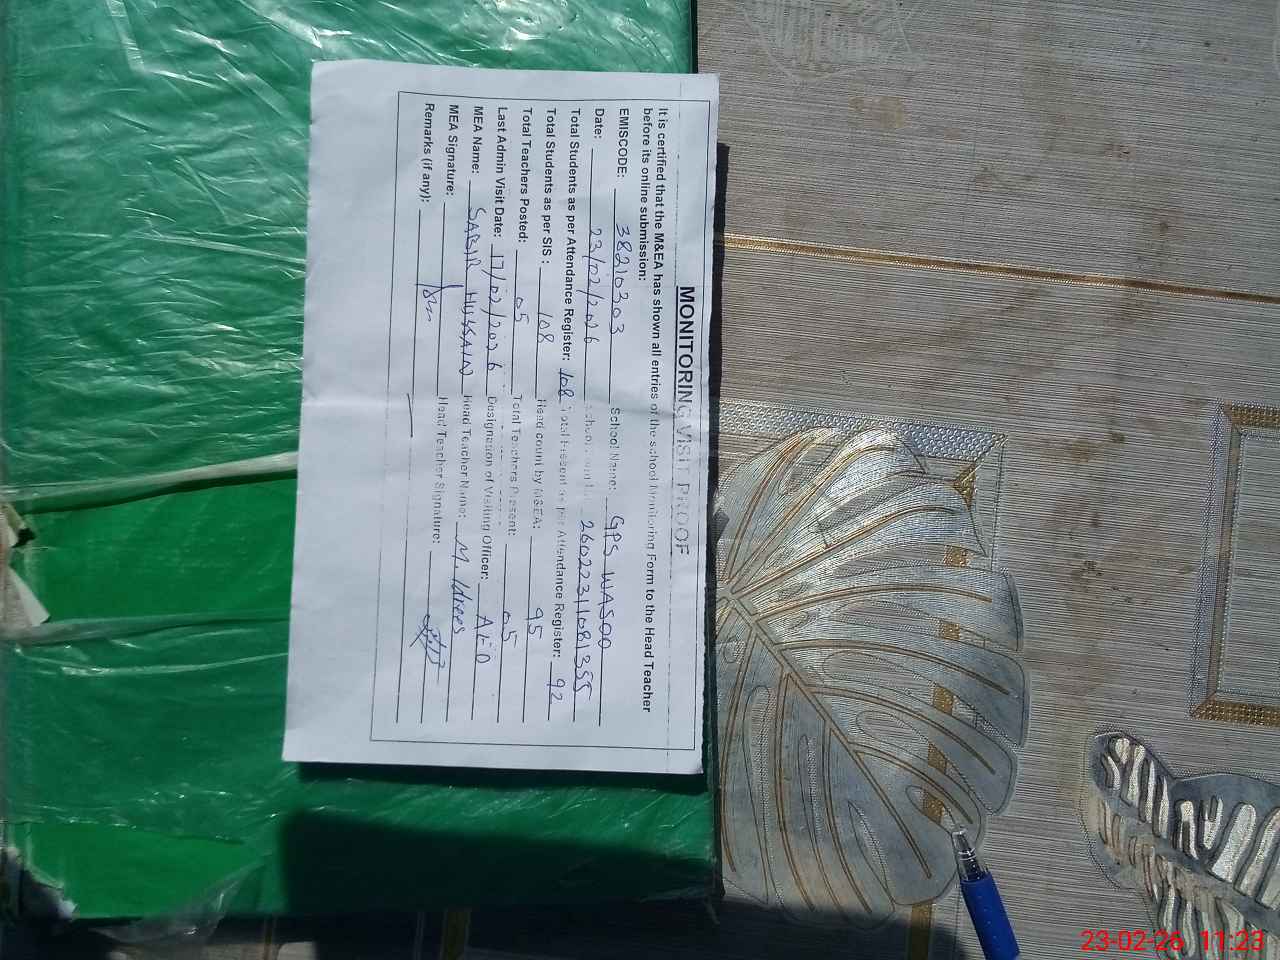 MONITORING VISIT PROOF
It is certified that the M&EA has shown all entries of the school Monitoring Form to the Head Teacher
before its online submission:
EMISCODE: 38210303 School Name: GPS WASOO
Date: 23/02/2026 School 26022311081355
Total Students as per Attendance Register: 108 Total Present as per Attendance Register: 92
Total Students as per SIS: 108 Head count by M&EA: 95
Total Teachers Posted: 05 Total Teachers Present: 05
Last Admin Visit Date: 17/02/2026 Designation of Visiting Officer: AEO
MEA Name: SABIR HUSSAIN Head Teacher Name: M. Idrees
MEA Signature: Head Teacher Signature:
Remarks (if any):
23-02-26 11:23